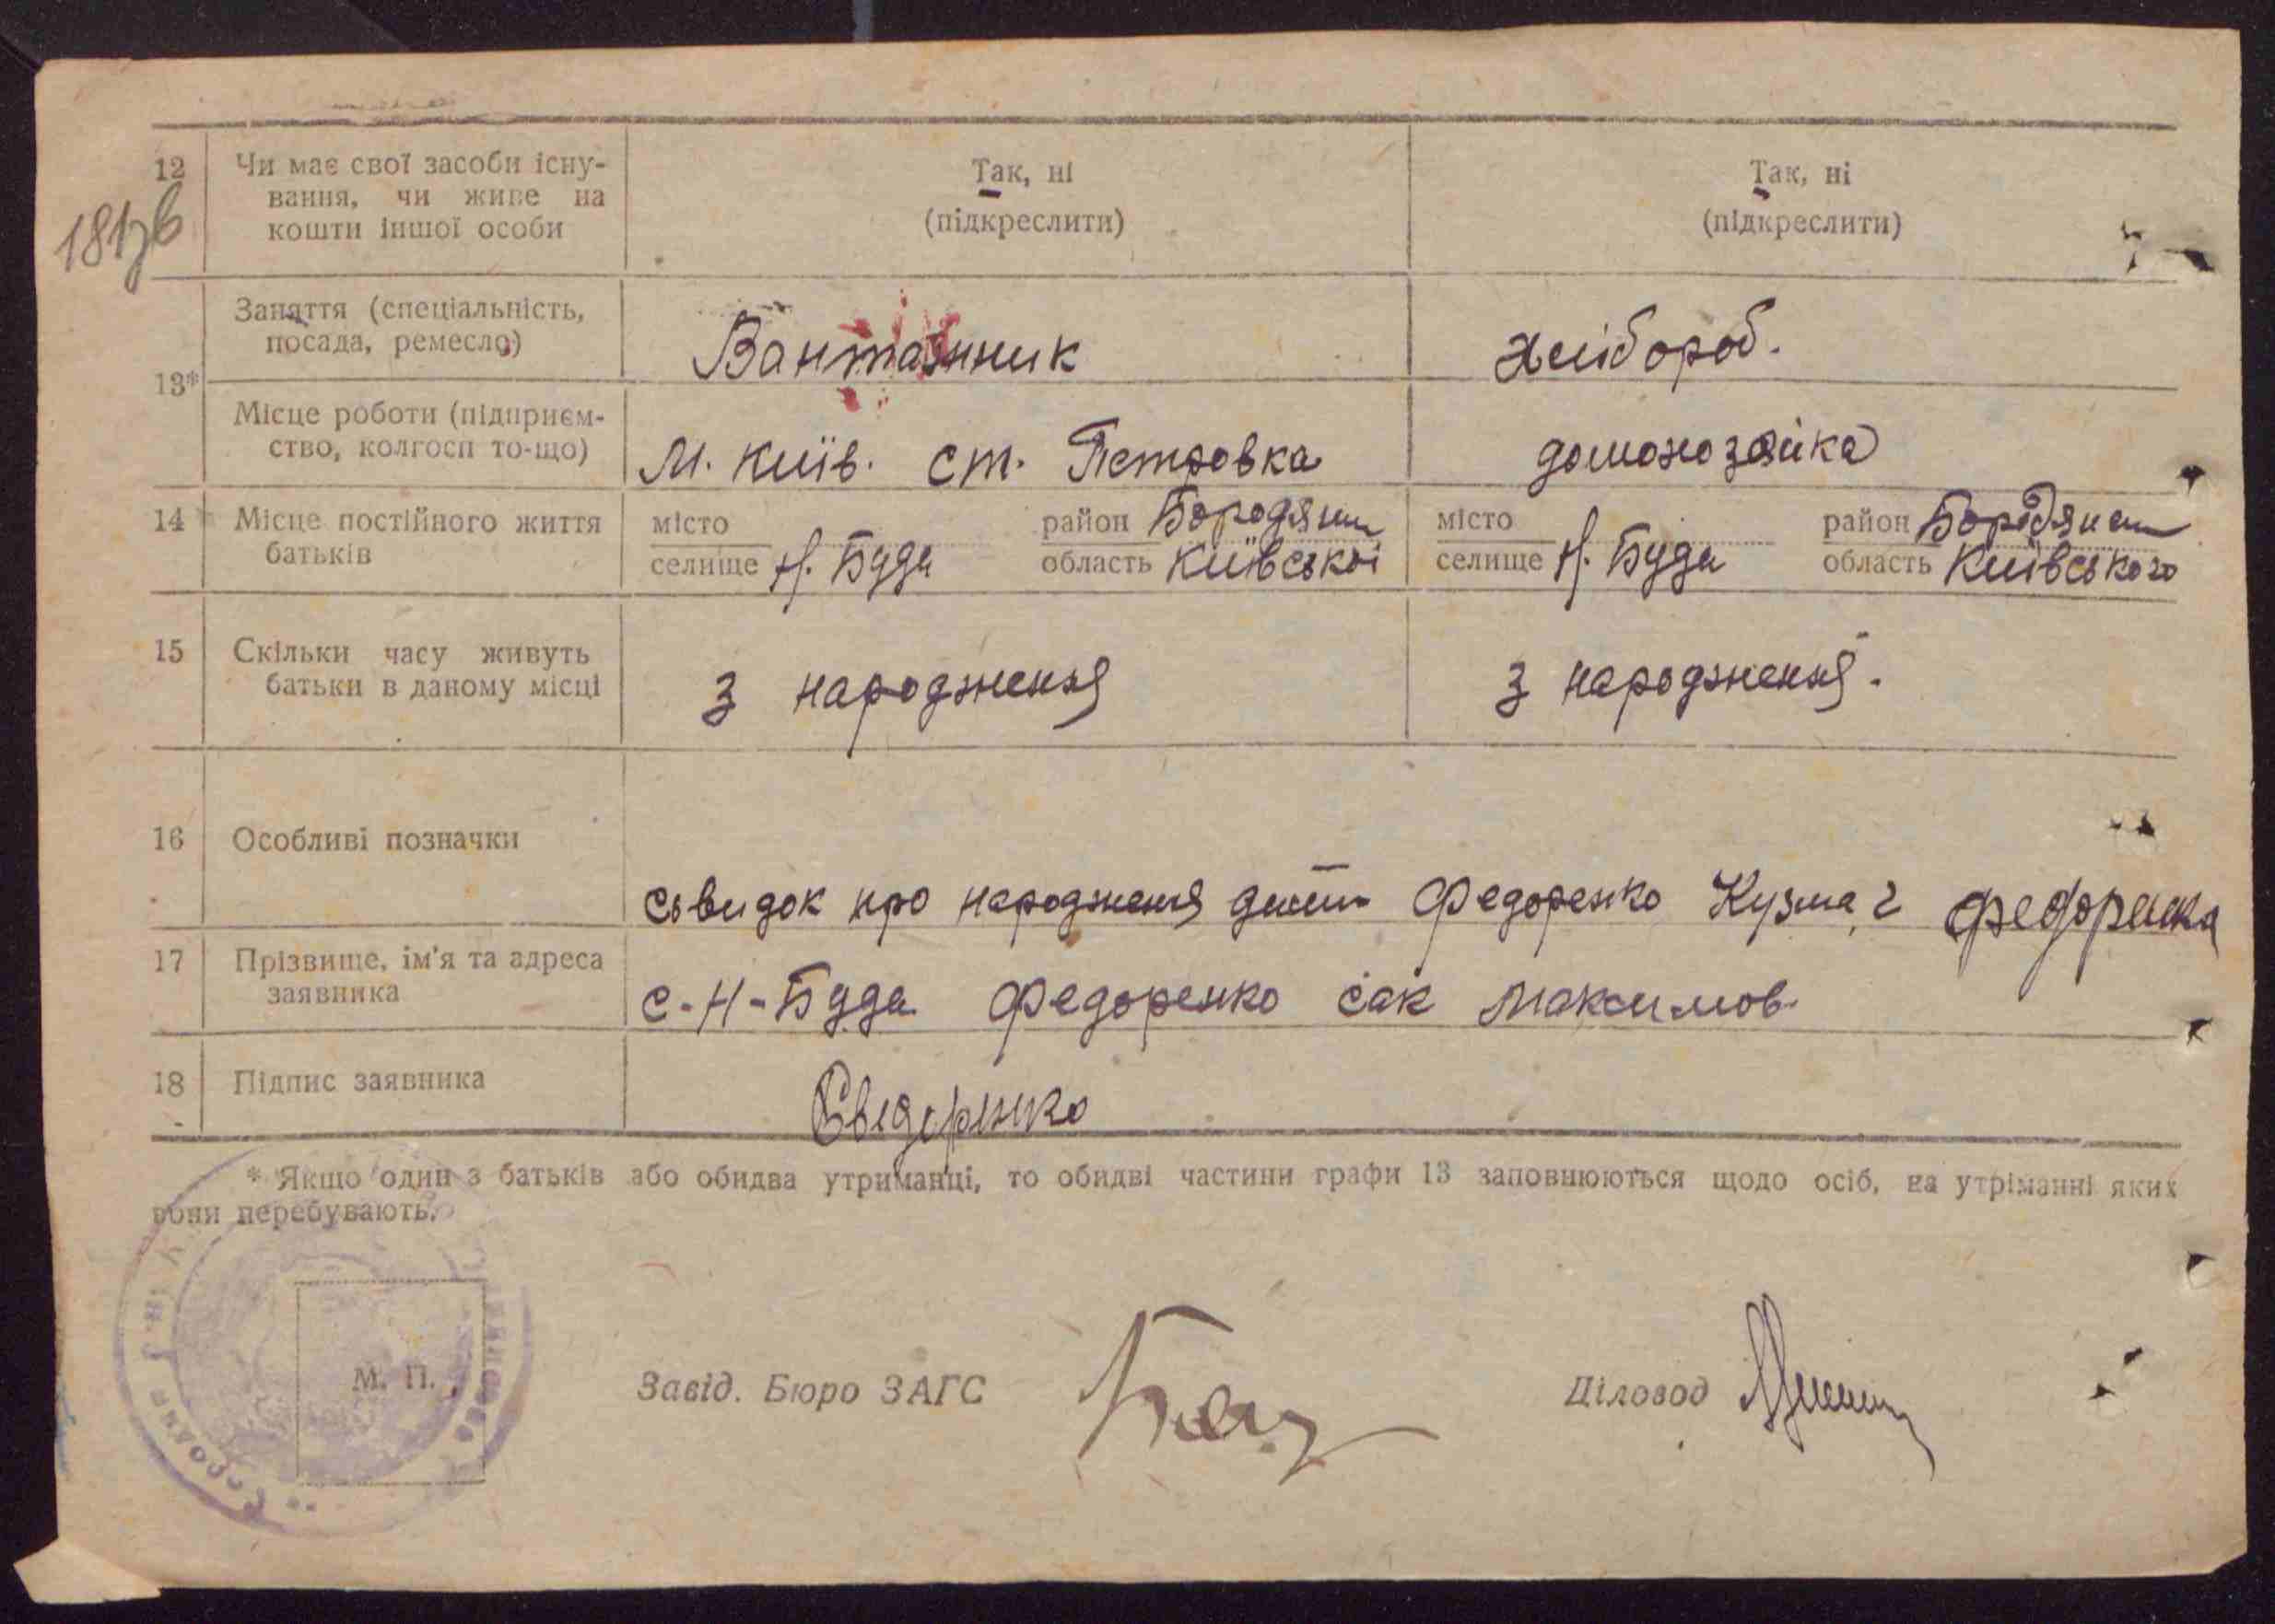 12 Чи має свої засоби існу-
вання, чи живе на
кошти іншої особи
Так, ні
(підкреслити)
Так, ні
(підкреслити)
181
13*
Заняття (спеціальність,
посада, ремесло)
Вантажник
хлібороб.
Місце роботи (підприєм-
ство, колгосп то-що)
М. Київ. ст. Петровка
домохозяйка
14 Місце постійного життя
батьків
місто
селище Н. Буда
район Бородянськ
область Київської
місто
селище Н. Буда
район Бородянськ
область Київського
15 Скільки часу живуть
батьки в даному місці
з народження
з народження.
16 Особливі позначки
сьвидок про народження дитини Федоренко Кузма
17 Прізвище, ім'я та адреса
заявника
с-Н-Буда Федоренко сак максимов.
18 Підпис заявника
* Якщо один з батьків або обидва утриманці, то обидві частини графи 13 заповнюються щодо осіб, на утріманні яких
вони перебувають.
М. П.
Завід. Бюро ЗАГС
Діловод